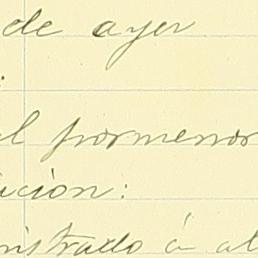 de ayer
:
al pormenor
ución:
nistrado á al